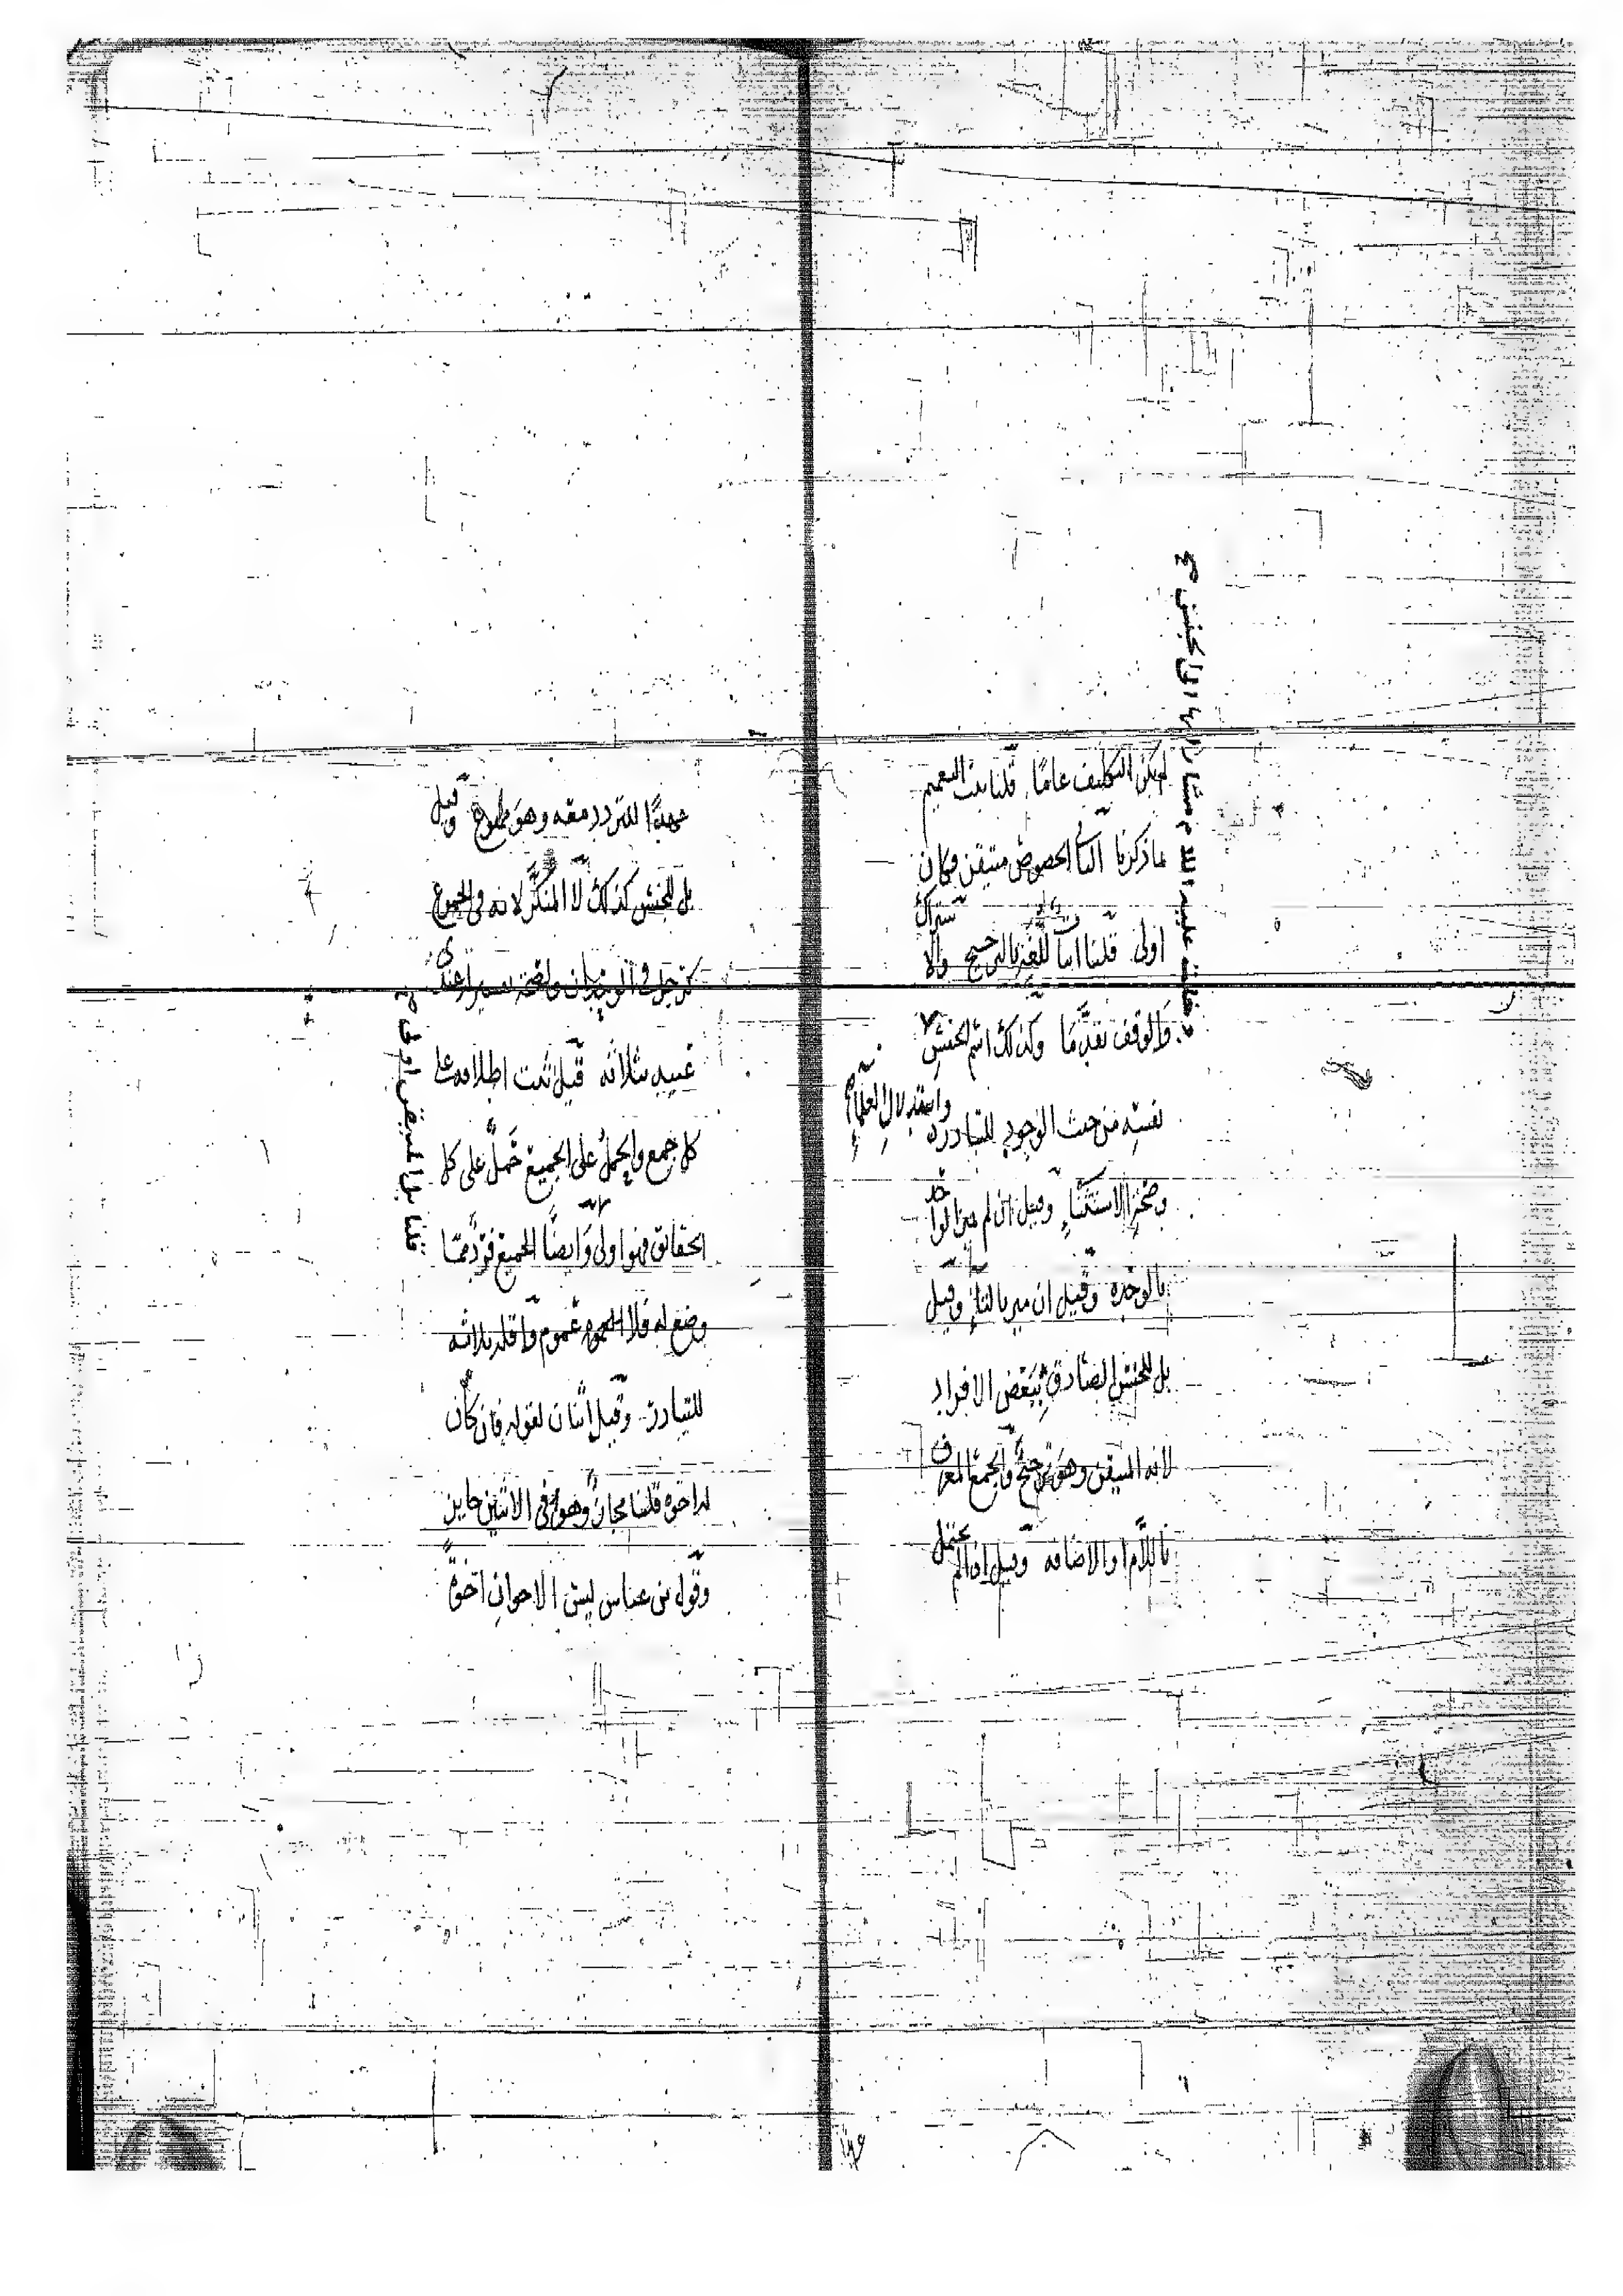 لم يكن التكليف عامًا قلنا يثبت التعميم
بما ذكرنا الثاني الخصوص متيقن فكان
اولى قلنا اثبات اللغة بالترجيح والاشتراك
والوقف تقدّما وكذلك اسم الجنس
نفسه من حيث الوجود للتبادر واستدلال العلماء
وصحة الاستثناء وقيل ان لم يميز الواحد
بالوحدة وقيل ان ميز بالتاء وقيل
بل للجنس الصادق ببعض الافراد
لانه المتيقن وهو ترجيح والجمع المعرف
باللام او الاضافة وقيل اذا لم يحتمل
عهدًا للتردد معه وهو وقيل
بل للجنس كذلك لا المنكّر لانه في الجموع
كرجل في الوحدان عندي
عبيد بثلاثه قيل ثبت اطلاقه على
كل جمع والحمل على الجميع حمل على كل
الحقائق فهو اولى وايضًا الجميع فرد مما
وضع له قلنا لا عموم واقله ثلاثه
للتبادر وقيل اثنان لقوله فان كان
له اخوه قلنا مجاز وهو في الاثنين جايز
وقول بن عباس ليس الاخوان اخوةً
قلنا بل البعض اولى